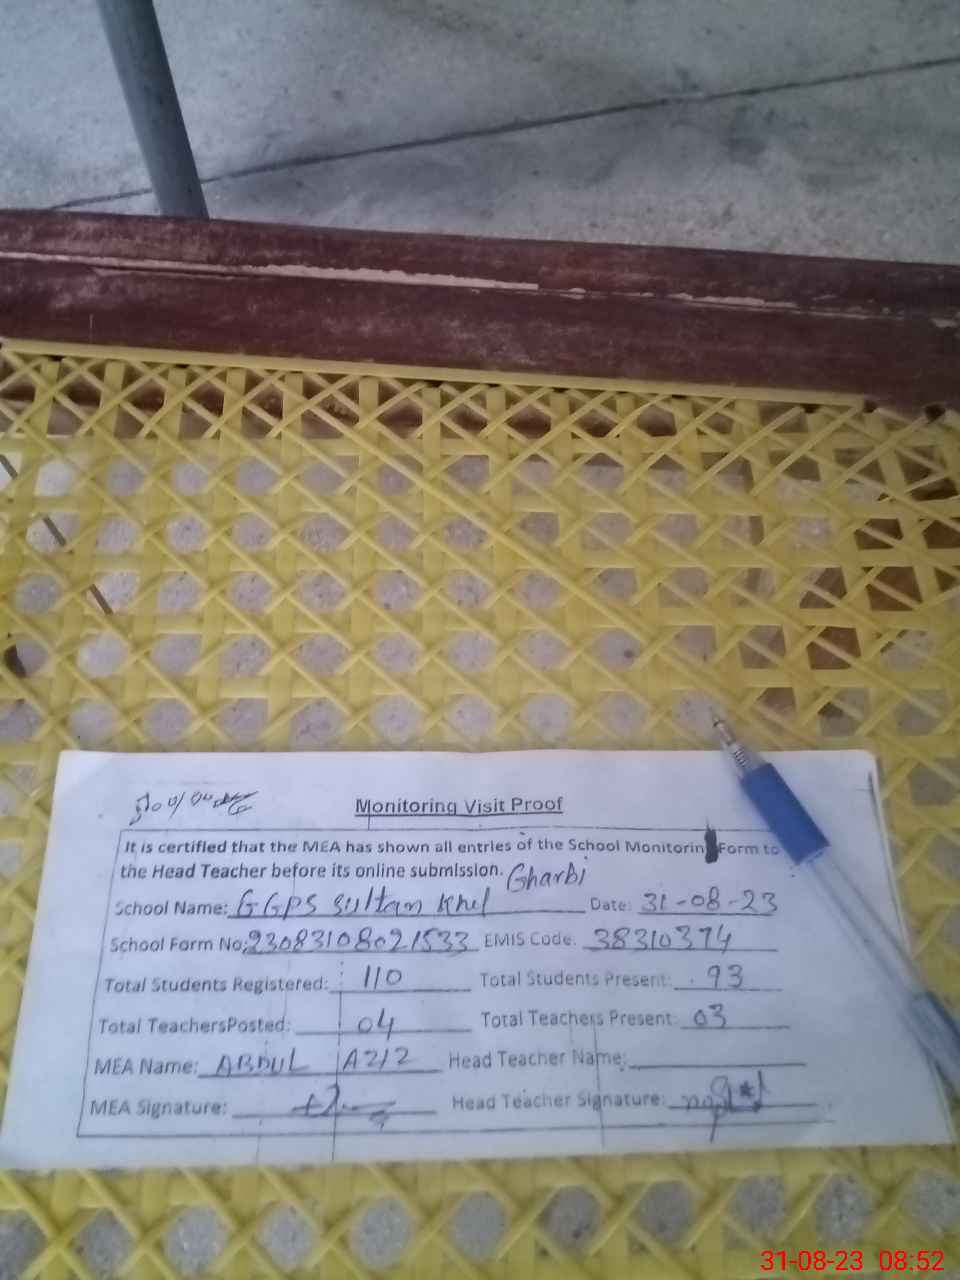 Monitoring Visit Proof
It is certified that the MEA has shown all entries of the School Monitoring Form to
the Head Teacher before its online submission.
School Name: GGPS Sultan Khel Gharbi Date: 31-08-23
School Form No: 23083108021533 EMIS Code: 38310374
Total Students Registered: 110 Total Students Present: 93
Total TeachersPosted: 04 Total Teachers Present: 03
MEA Name: ABDUL AZIZ Head Teacher Name:
MEA Signature: Head Teacher Signature:
31-08-23 08:52